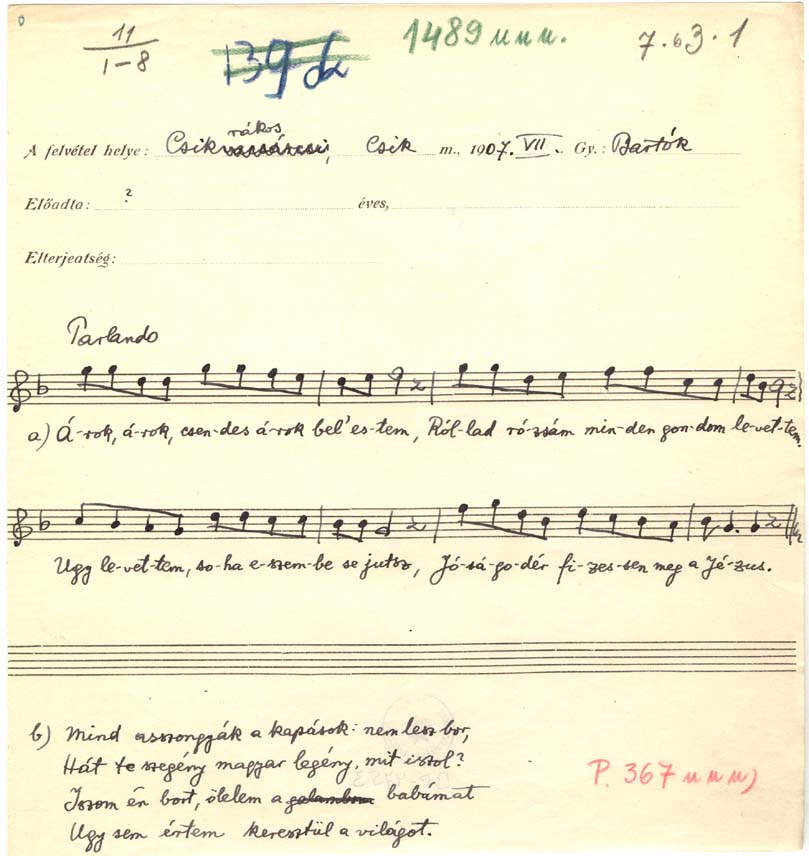 0
11
1-8
139
1489 u u u.
7.63.1
rákos
A felvétel helye: Csik, Csik m., 1907. VII. Gy.: Bartók
Előadta: ? éves,
Elterjeatség:
Parlando
a) Á-rok, á-rok, csen-des á-rok bel'es-tem, Ról-lad ró-zsám min-den gon-dom le-vet-tem.
Ugy le-vet-tem, so-ha e-szem-be se jutsz, Jó-sá-go-dér fi-zes-sen meg a Jé-zus.
b) Mind asszongyák a kapások: nem lesz bor,
Hát te szegény magyar legény, mit iszol?
Iszom én bort, ölelem a galambom babámat
Ugy sem értem keresztül a világot.
P. 367 u u u)